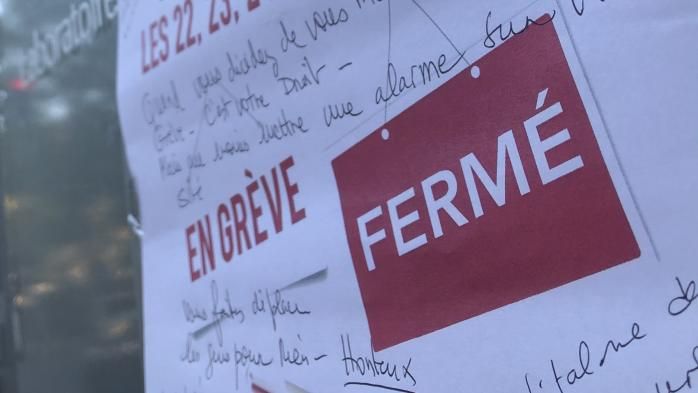 Laboratoire
LES 22, 23, 2
Quand vous décidez de vous m
Grève - C'est votre Droit -
Mais au moins mettre une alarme sur
site
EN GRÈVE
FERMÉ
Vous faites déplacer
les gens pour Rien - Honteux
de